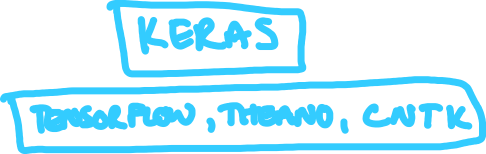 KERAS
TENSORFLOW, THEANO, CNTK